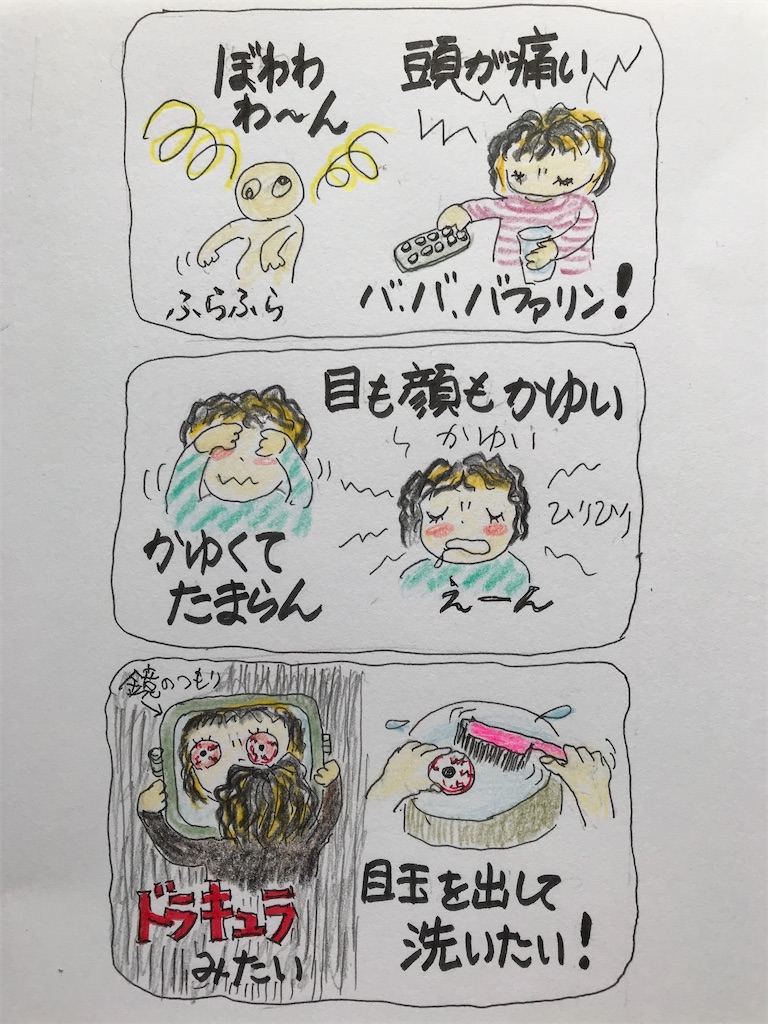 ぼわわ
わ〜ん
ふらふら
頭が痛い
バ、バ、バファリン!
目も顔もかゆい
かゆい
かゆくて
たまらん
ひりひり
えーん
鏡のつもり
ドラキュラ
みたい
目玉を出して
洗いたい!